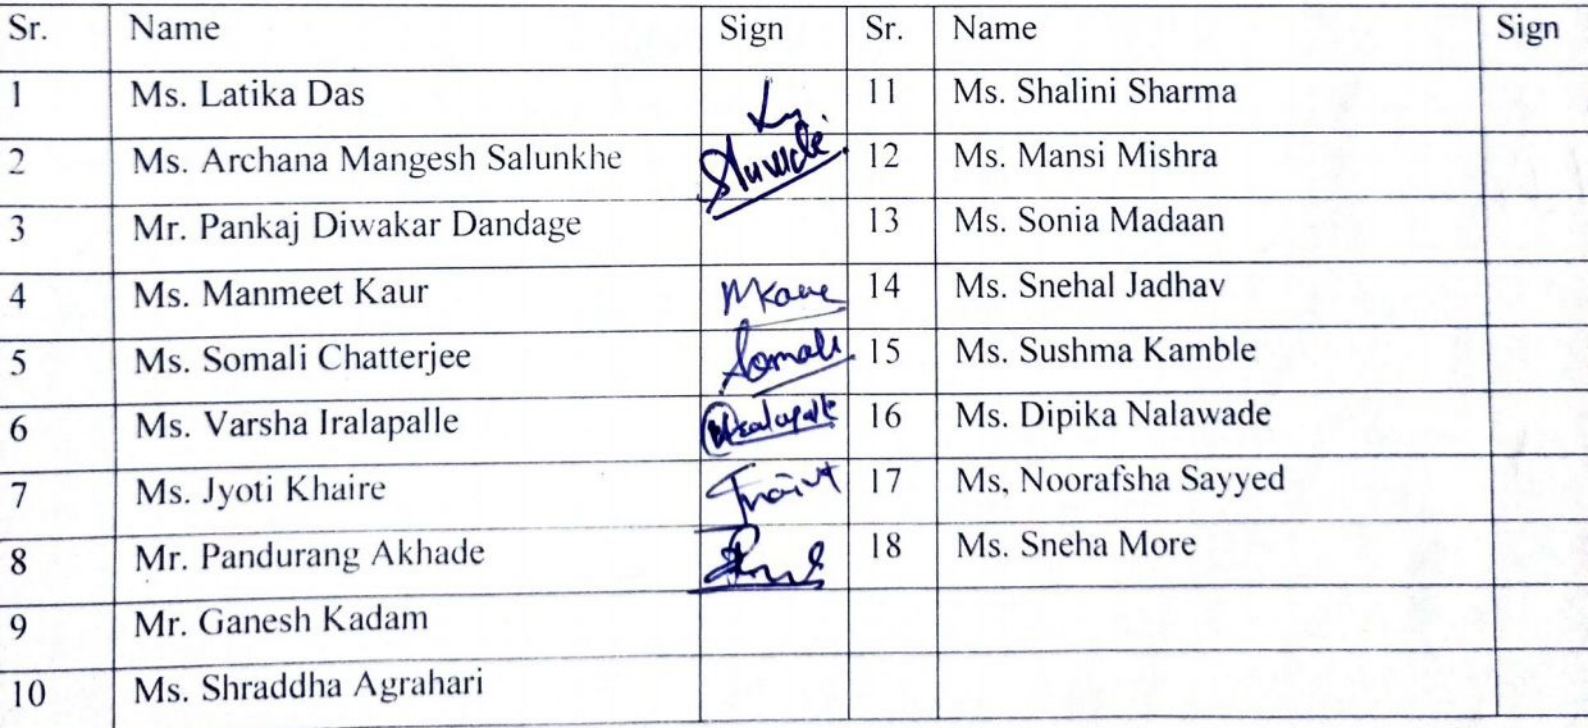 Sr. Name Sign Sr. Name Sign
1 Ms. Latika Das 11 Ms. Shalini Sharma
2 Ms. Archana Mangesh Salunkhe 12 Ms. Mansi Mishra
3 Mr. Pankaj Diwakar Dandage 13 Ms. Sonia Madaan
4 Ms. Manmeet Kaur 14 Ms. Snehal Jadhav
5 Ms. Somali Chatterjee Somali 15 Ms. Sushma Kamble
6 Ms. Varsha Iralapalle 16 Ms. Dipika Nalawade
7 Ms. Jyoti Khaire 17 Ms, Noorafsha Sayyed
8 Mr. Pandurang Akhade 18 Ms. Sneha More
9 Mr. Ganesh Kadam
10 Ms. Shraddha Agrahari